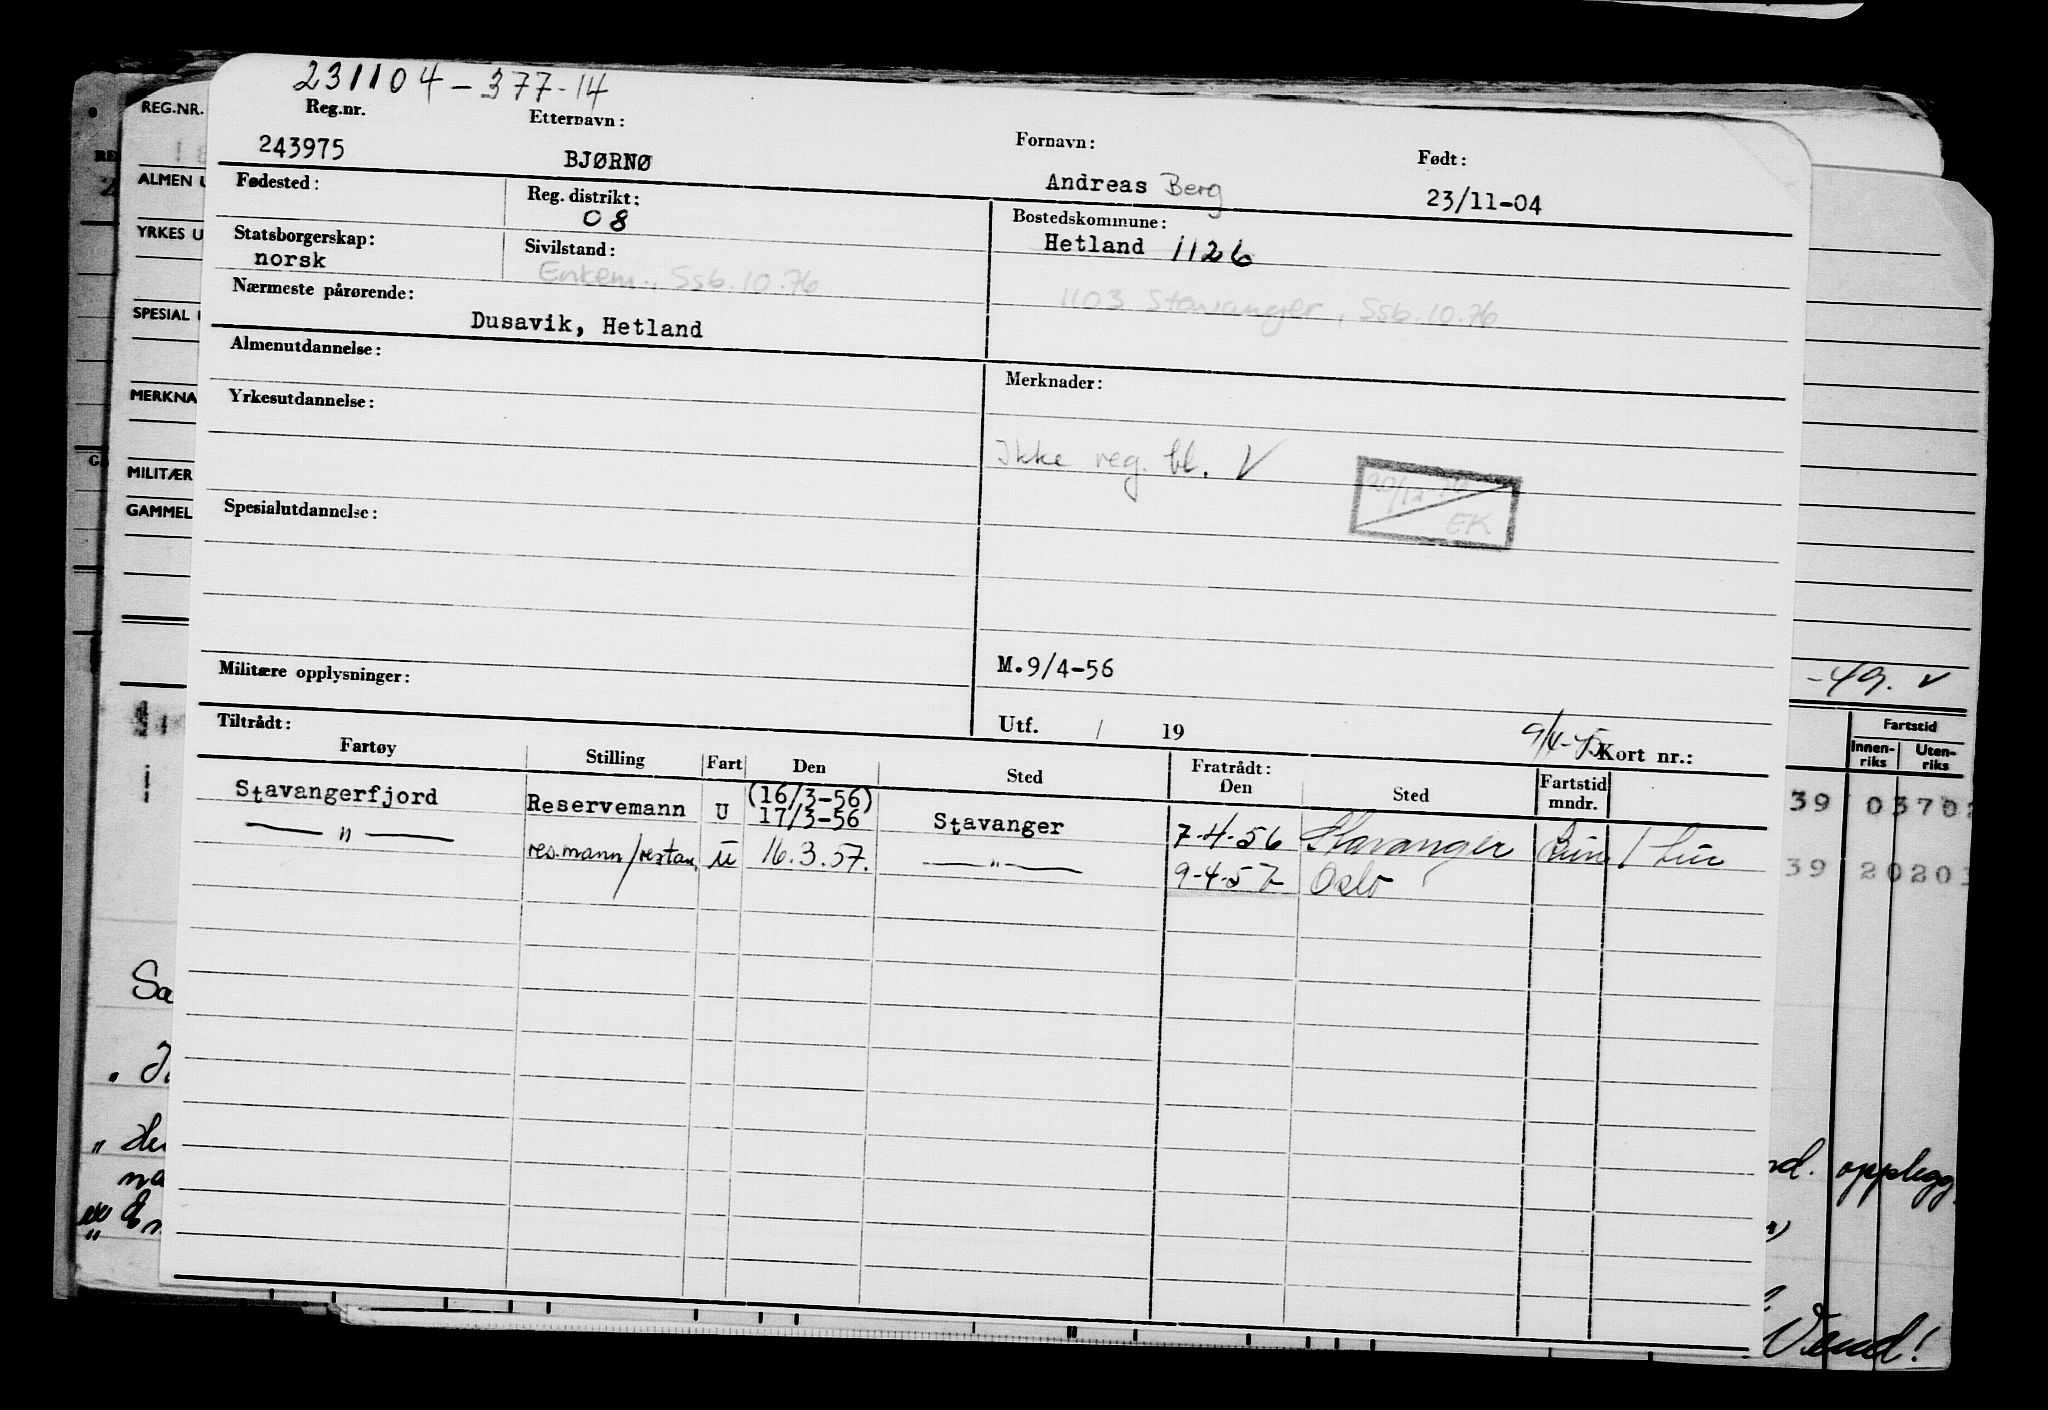 231104-377-14
REG.NR.
Reg.nr. Etternavn: Fornavn: Født:
243975 BJØRNØ Andreas Berg 23/11-04
ALMEN U
Fødested: Reg. distrikt: Bostedskommune:
08 Hetland 1126
YRKES U
Statsborgerskap: Sivilstand:
norsk Enkem., Ssb.10.76
1103 Stavanger, Ssb.10.76
Nærmeste pårørende:
SPESIAL
Dusavik, Hetland
Almenutdannelse: Merknader:
MERKNA
Yrkesutdannelse:
Ikke reg. bl. V
MILITÆR
EK
GAMMEL
Spesialutdannelse:
M.9/4-56
Militære opplysninger:
-49. v
Utf. / 19 Kort nr.:
Tiltrådt: Fratrådt: Fartstid
Fartøy Stilling Fart Den Sted Den Sted Fartstid mndr. Innen-riks Uten-riks
Stavangerfjord Reservemann U (16/3-56) 17/3-56 Stavanger 7-4-56 Stavanger 1 tur
39 0370
— " — res.mann/restau. U 16.3.57. — " — 9-4-57 Oslo
39 20203
Sa
nd. opplegg
Vend!